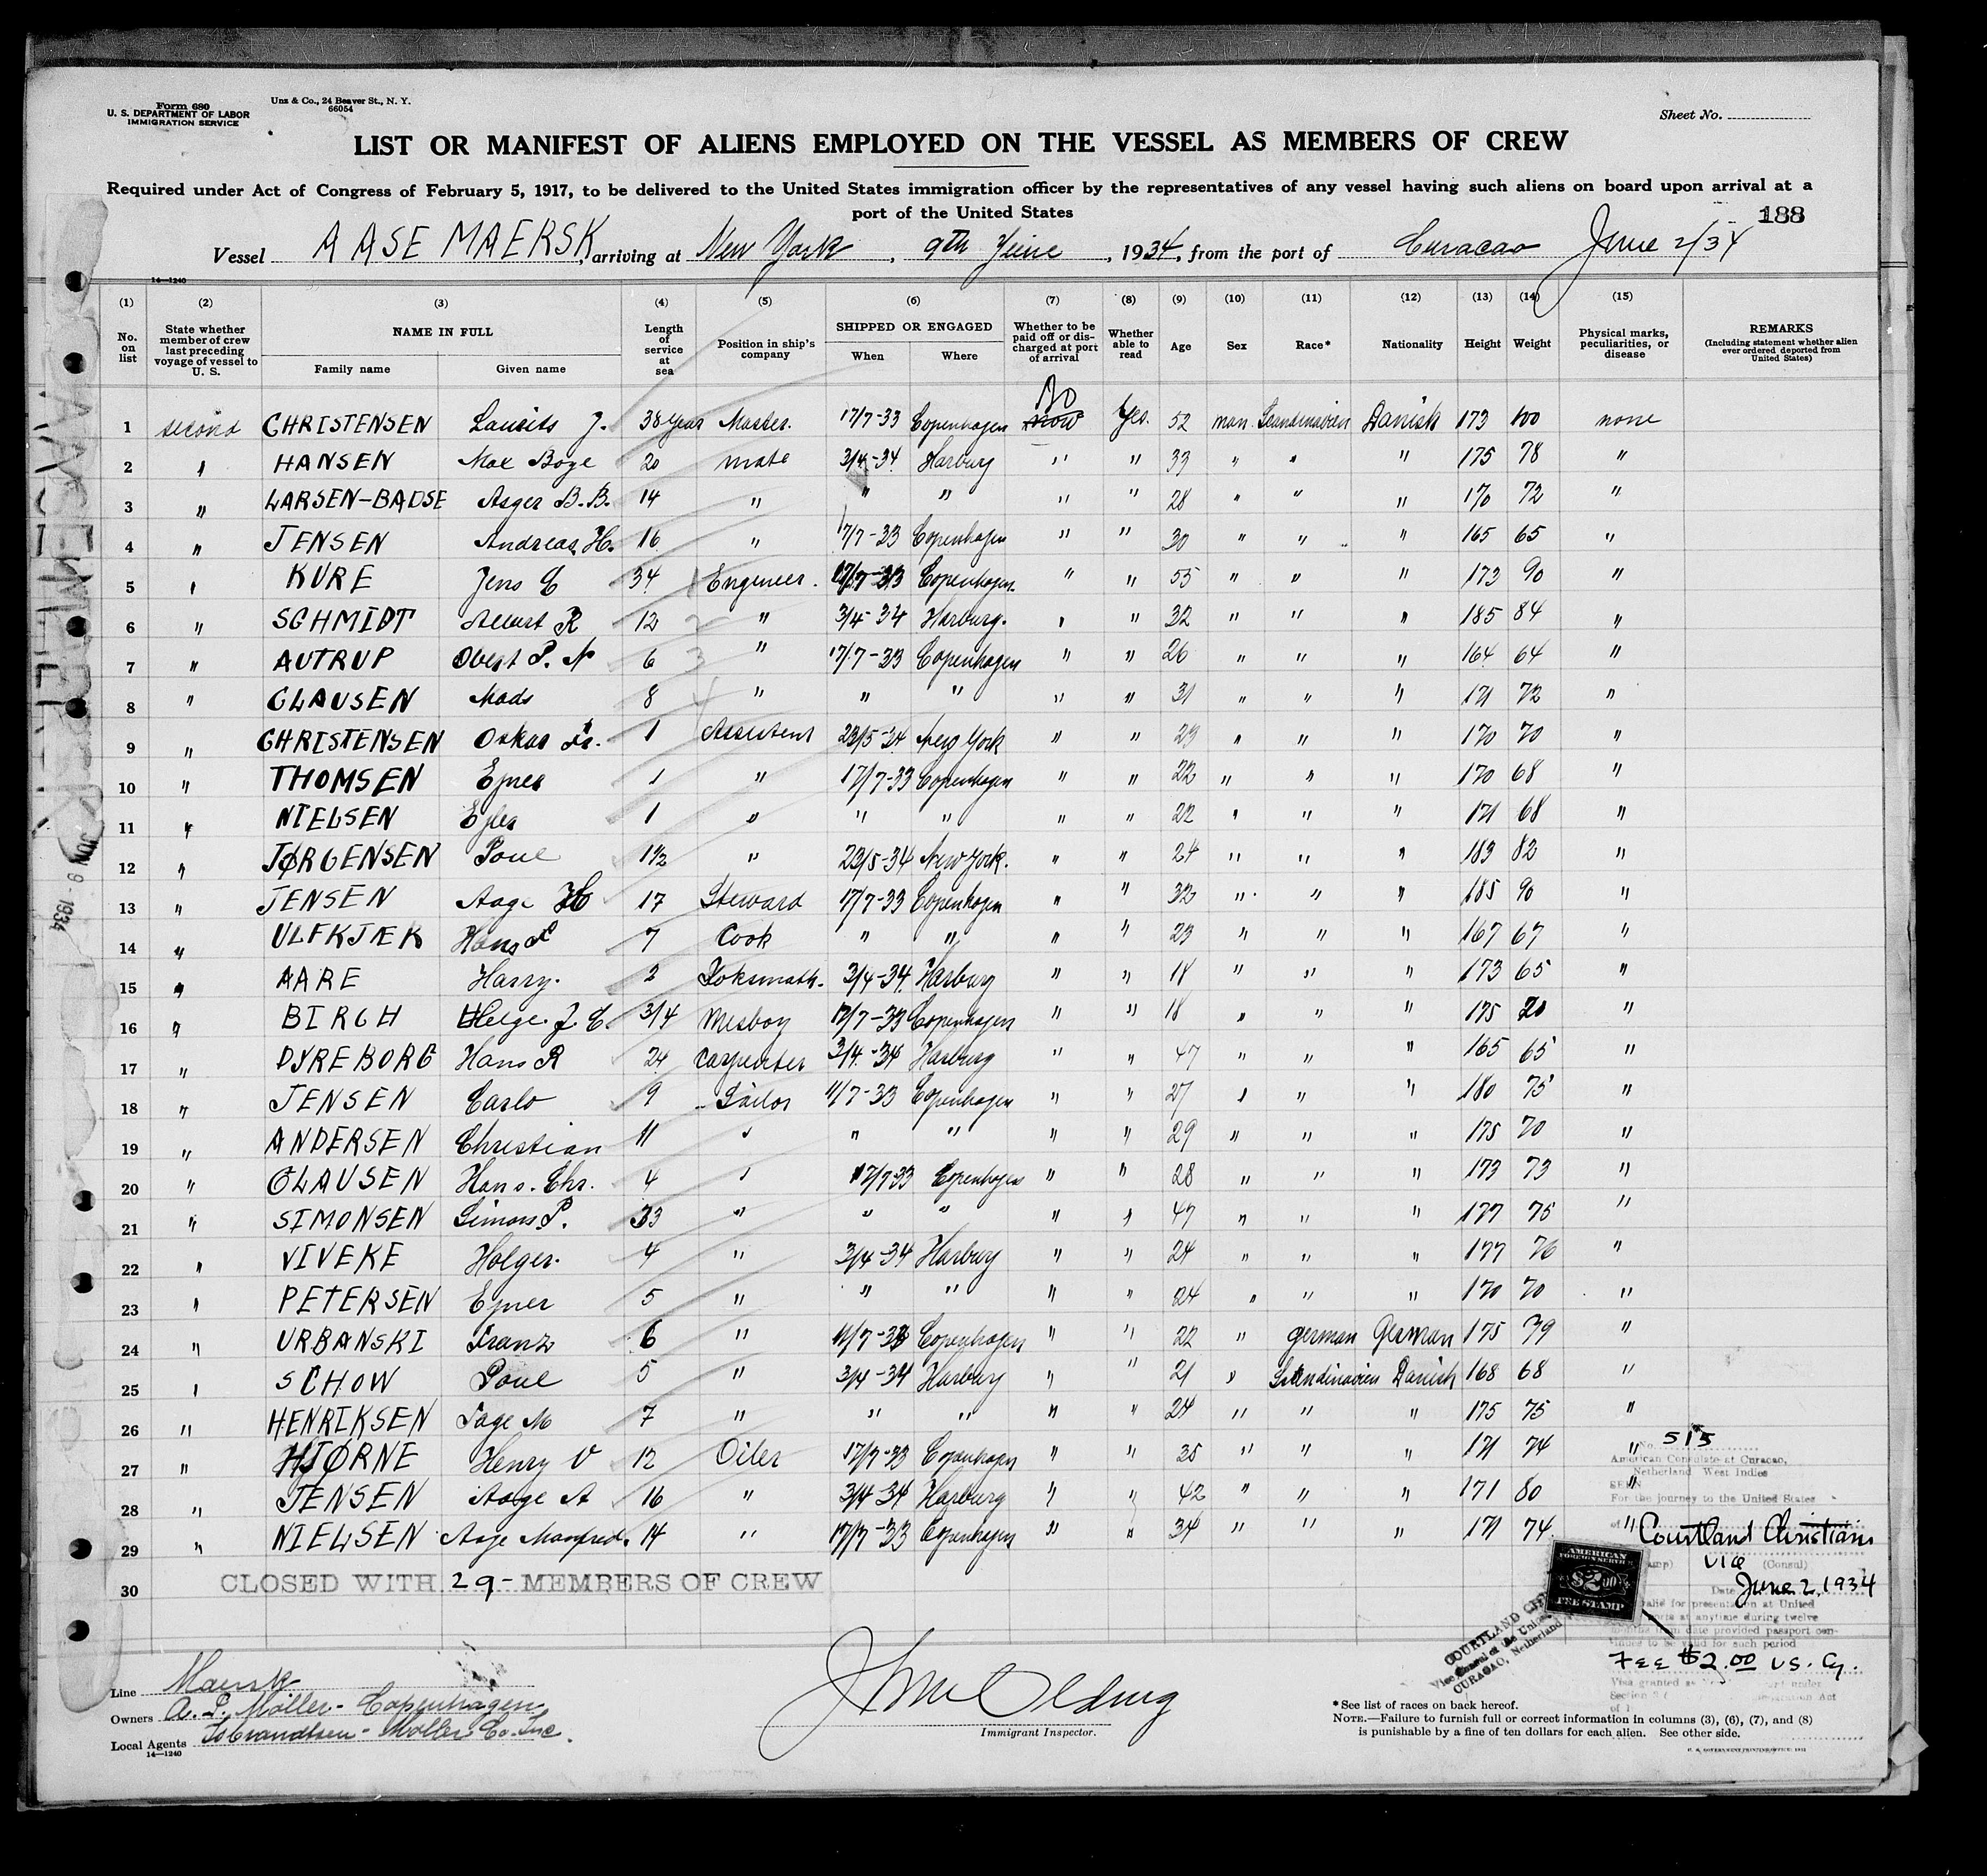 Form 680
U. S. DEPARTMENT OF LABOR
IMMIGRATION SERVICE
Unz & Co., 24 Beaver St., N. Y.
66054
Sheet No.
LIST OR MANIFEST OF ALIENS EMPLOYED ON THE VESSEL AS MEMBERS OF CREW
Required under Act of Congress of February 5, 1917, to be delivered to the United States immigration officer by the representatives of any vessel having such aliens on board upon arrival at a
port of the United States
188
Vessel AASE MAERSK, arriving at New York, 9th June, 1934, from the port of Curacao June 2/34
14—1240
(1) (2) (3) (4) (5) (6) (7) (8) (9) (10) (11) (12) (13) (14) (15)
No. on list | State whether member of crew last preceding voyage of vessel to U. S. | NAME IN FULL Family name Given name | Length of service at sea | Position in ship's company | SHIPPED OR ENGAGED When Where | Whether to be paid off or discharged at port of arrival | Whether able to read | Age | Sex | Race* | Nationality | Height | Weight | Physical marks, peculiarities, or disease | REMARKS (Including statement whether alien ever ordered deported from United States)
No
1 second CHRISTENSEN Laurits J. 38 year Master. 17/7-33 Copenhagen now Yes. 52 man Scandinavien Danish 173 100 none
2 " HANSEN Max Boye 20 mate 3/4-34 Harburg " " 33 " " " 175 78 "
3 " LARSEN-BADSE Asger B.B. 14 " " " " " 28 " " " 170 72 "
4 " JENSEN Andreas H. 16 " 17/7-33 Copenhagen " " 30 " " " 165 65 "
5 " KURE Jens C 34 Engineer. 17/7-33 Copenhagen " " 55 " " " 173 90 "
6 " SCHMIDT R 12 " 3/4-34 Harburg. " " 32 " " " 185 84 "
7 " AUTRUP Obert P. N 6 " 17/7-33 Copenhagen " " 26 " " " 164 64 "
8 " CLAUSEN Mads 8 " " " " " 31 " " " 171 72 "
9 " CHRISTENSEN Oskar Fr. 1 Assistent 23/5-34 New York " " 23 " " " 170 70 "
10 " THOMSEN Ejner 1 " 17/7-33 Copenhagen " " 22 " " " 170 68 "
11 " NIELSEN Ejler 1 " " " " " 22 " " " 171 68 "
12 " JØRGENSEN Poul 1½ " 23/5-34 New York. " " 24 " " " 183 82 "
13 " JENSEN Aage H 17 Steward 17/7-33 Copenhagen " " 32 " " " 185 90 "
14 " ULFKJÆR Hans L 7 Cook " " " " 23 " " " 167 67 "
15 " AARE Harry. 2 Koksmath. 3/4-34 Harburg " " 18 " " " 173 65 "
16 " BIRCH Helge J. C. 3/4 Mesboy 17/7-33 Copenhagen " " 18 " " " 175 70 "
17 " DYREBORG Hans R 24 Carpenter 3/4-34 Harburg " " 47 " " " 165 65 "
18 " JENSEN Carlo 9 Sailor 11/7-33 Copenhagen " " 27 " " " 180 75 "
19 " ANDERSEN Christian 11 " " " " " 29 " " " 175 70 "
20 " CLAUSEN Hans. Chr. 4 " 17/7-33 Copenhagen " " 28 " " " 173 73 "
21 " SIMONSEN Simon P. 33 " " " " " 47 " " " 177 75 "
22 " VIVEKE Holger. 4 " 3/4-34 Harburg " " 24 " " " 177 76 "
23 " PETERSEN Ejner 5 " " " " " 24 " " " 170 70 "
24 " URBANSKI Franz 6 " 11/7-33 Copenhagen " " 22 " german German 175 79 "
25 " SCHOW Poul 5 " 3/4-34 Harburg " " 21 " Scandinavien Danish 168 68 "
26 " HENRIKSEN Tage M 7 " " " " " 24 " " " 175 75 "
27 " HJØRNE Henry V 12 Oiler 17/7-33 Copenhagen " " 35 " " " 171 74 "
28 " JENSEN Aage A 16 " 3/4-34 Harburg " " 42 " " " 171 80 "
29 " NIELSEN Aage Manfred. 14 " 17/7-33 Copenhagen " " 34 " " " 171 74 "
30 CLOSED WITH 29- MEMBERS OF CREW
No. 515
American Consulate at Curacao,
Netherland West Indies
SEEN
For the journey to the United States
Courtland Christiani
Vice (Consul)
Date June 2, 1934
Valid for presentation at United
at anytime during twelve
months from date provided passport con-
tinues to be valid for such period
Fee $2.00 US. Cy.
AMERICAN
FOREIGN SERVICE
$2.00
FEE STAMP
Vice Consul of the United
CURACAO, Netherland
AASE MAERSK
JUN 9 - 1934
Line Maersk
Owners A. P. Möller - Copenhagen
Local Agents Isbrandtsen - Moller Co. Inc.
14—1240
Immigrant Inspector.
*See list of races on back hereof.
NOTE.—Failure to furnish full or correct information in columns (3), (6), (7), and (8)
is punishable by a fine of ten dollars for each alien. See other side.